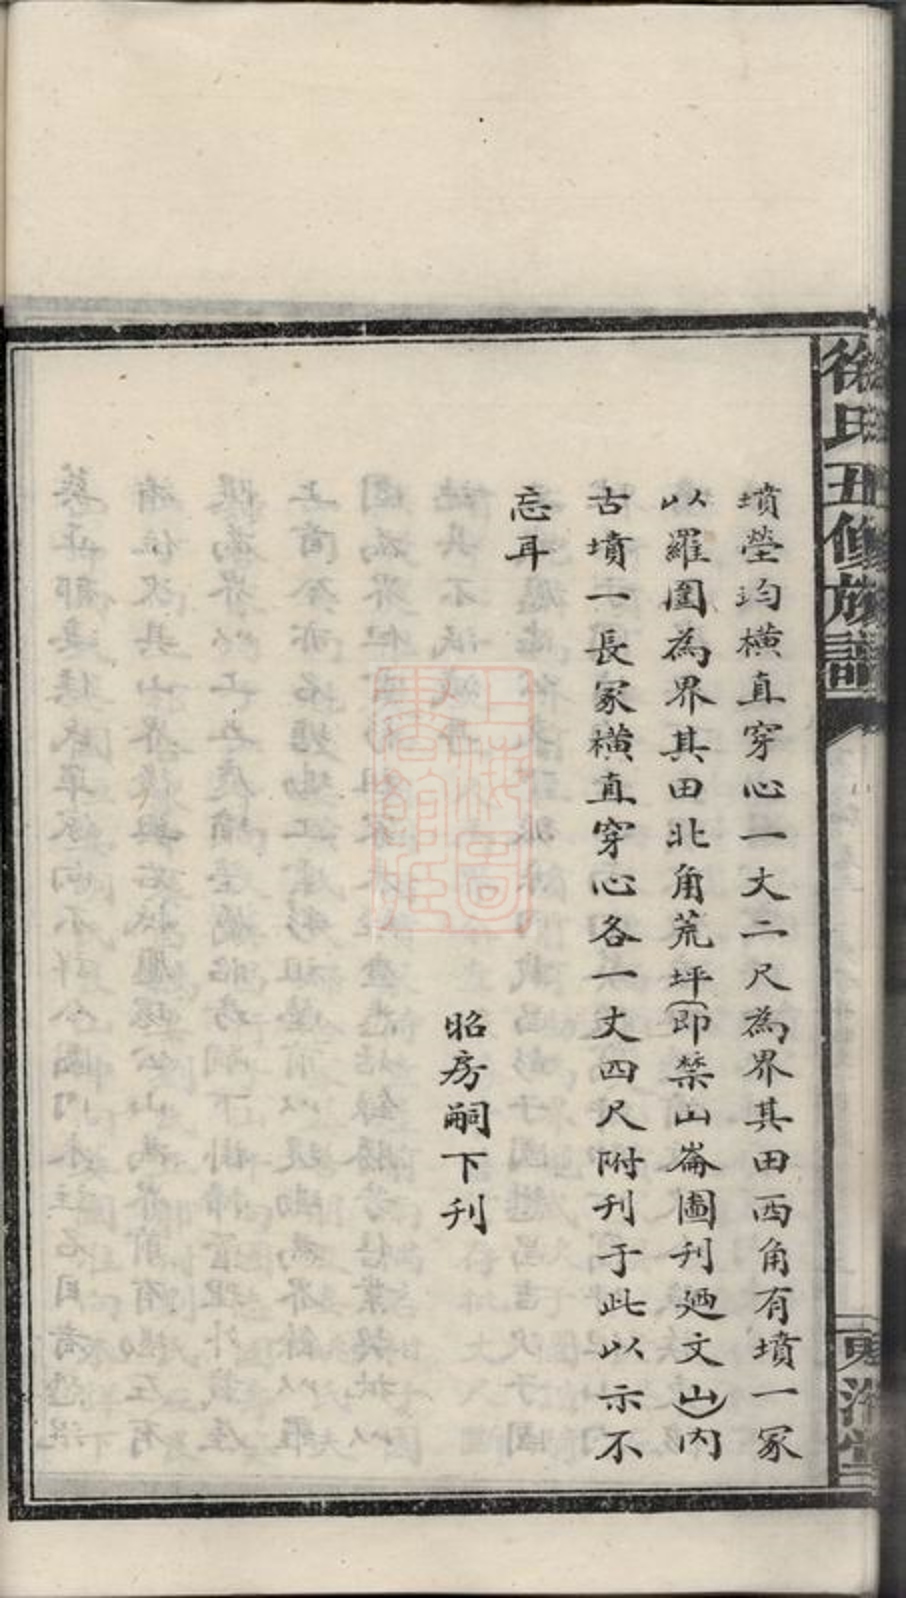 墳塋均橫直穿心一丈二尺為界其田西角有墳一冢
以羅圍為界其田北角荒坪(即禁山崙圖刋廼文山)內
古墳一長冢橫直穿心各一丈四尺附刋于此以示不
忘耳
昭房嗣下刋
徐氏五修族譜
上海圖書館藏